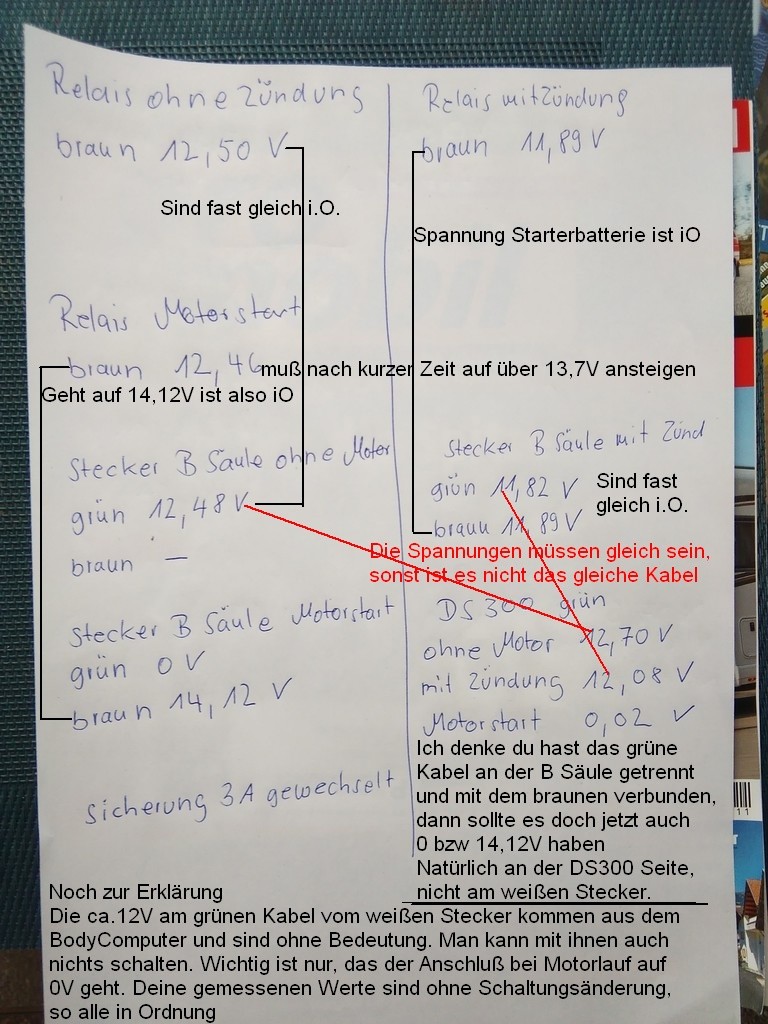 Relais ohne Zündung
braun 12,50 V
Sind fast gleich i.O.
Relais Motorstart
braun 12,46
muß nach kurzer Zeit auf über 13,7V ansteigen
Geht auf 14,12V ist also iO
Stecker B Säule ohne Motor
grün 12,48 V
braun —
Stecker B Säule Motorstart
grün 0 V
braun 14,12 V
Sicherung 3A gewechselt
Relais mit Zündung
braun 11,89 V
Spannung Starterbatterie ist iO
Stecker B Säule mit Zünd
grün 11,82 V
braun 11,89 V
Sind fast
gleich i.O.
Die Spannungen müssen gleich sein,
sonst ist es nicht das gleiche Kabel
DS 300 grün
ohne Motor 12,70 V
mit Zündung 12,08 V
Motorstart 0,02 V
Ich denke du hast das grüne
Kabel an der B Säule getrennt
und mit dem braunen verbunden,
dann sollte es doch jetzt auch
0 bzw 14,12V haben
Natürlich an der DS300 Seite,
nicht am weißen Stecker.
Noch zur Erklärung
Die ca.12V am grünen Kabel vom weißen Stecker kommen aus dem
BodyComputer und sind ohne Bedeutung. Man kann mit ihnen auch
nichts schalten. Wichtig ist nur, das der Anschluß bei Motorlauf auf
0V geht. Deine gemessenen Werte sind ohne Schaltungsänderung,
so alle in Ordnung